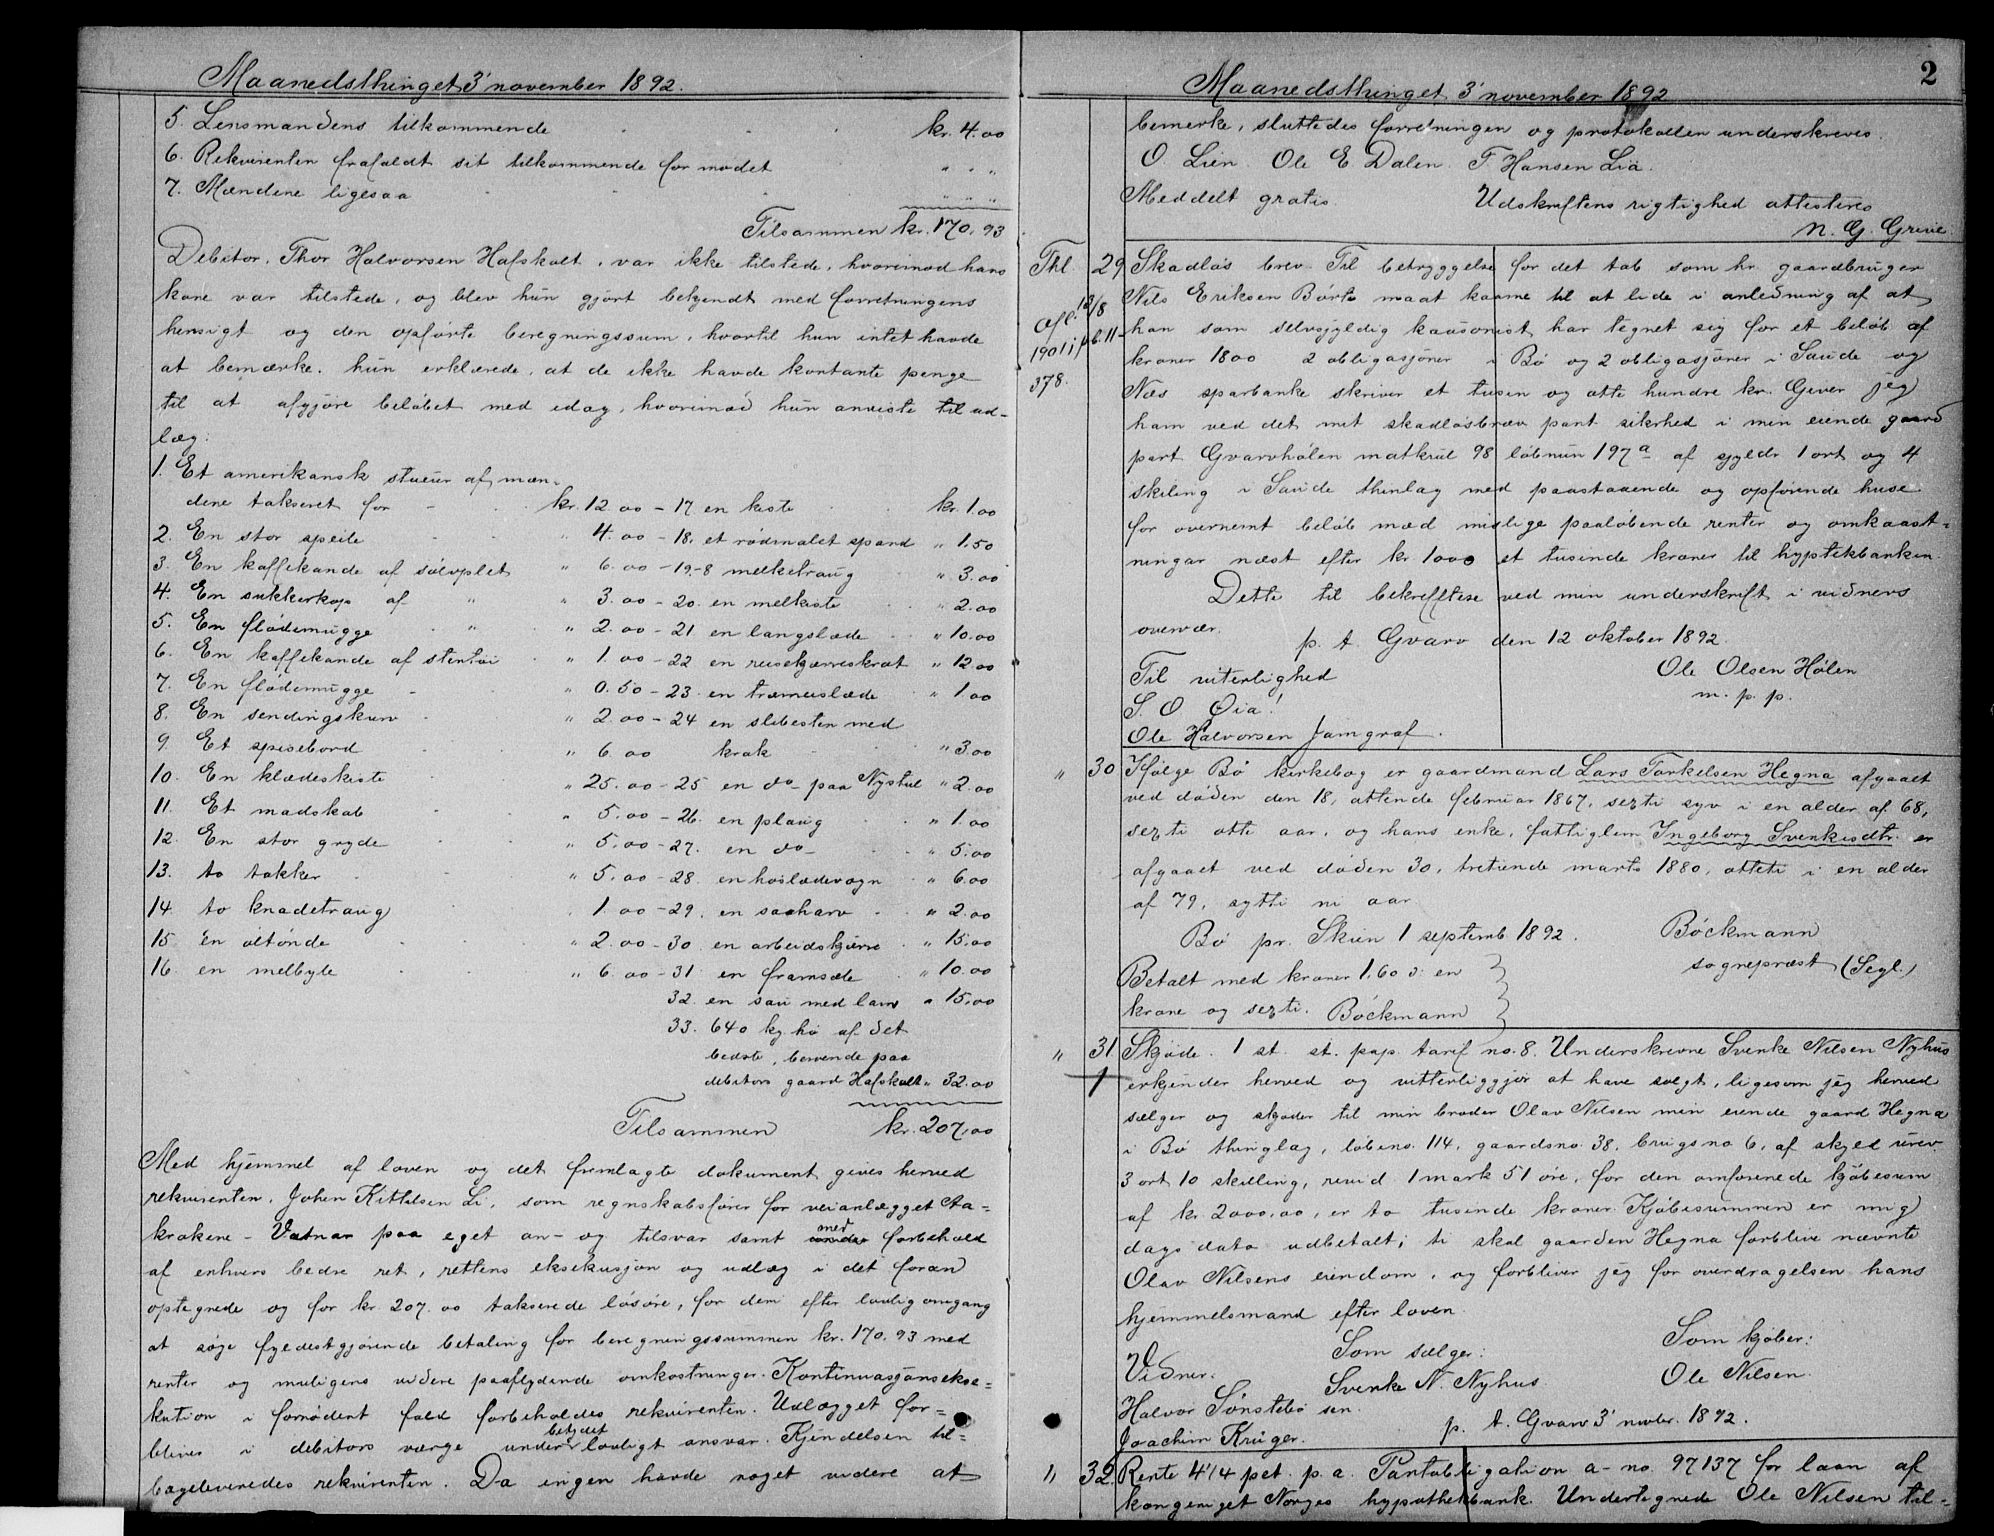 Maanedsthinget 3' november 1892.
5. Lensmandens tilkommende kr. 4.00
6. Rekvirenten frafaldt sit tilkommende for mødet " " "
7. Mændene ligesaa " " "
Tilsammen kr. 170.93
Debitor, Thor Halvorsen Hafskolt, var ikke tilstede, hvorimod hans
kone var tilstede, og blev hun gjort bekjendt med forretningens
hensigt og den opførte beregningssum, hvortil hun intet havde
at bemærke. hun erklærede, at de ikke havde kontante penge
til at afgjøre beløbet med idag, hvorimod hun anviste til ud-
læg:
1. Et amerikansk stueur af mæn-
dene takseret for kr. 12 00 - 17 en kiste kr. 1.00
2. En stor speile " 4.00 - 18. et rødmalet spand " 1.50
3. En kaffekande af sølvplet " 6.00 - 19. - 8 melketraug " 3.00
4. En sukkerkop af " " 3.00 - 20. en melkiste " 2.00
5. En flødemugge " " 2.00 - 21 en langslæde " 10.00
6. En kaffekande af stentøi " 1.00 - 22 en reisekjærreskrat " 12.00
7. En flødemugge " 0.50 - 23. en træmeislæde " 1.00
8. En sendingskurv " 2.00 - 24 en slibesten med
9. Et spisebord " 6.00 krak " 3.00
10. En klædeskiste " 25.00 - 25 en do - paa Nystul " 2.00
11. Et madskab " 5.00 - 26. en plaug " 1.00
12. En stor gryde " 5.00 - 27. en do - " 5.00
13. to takker " 5.00 - 28. en høslædevogn " 6.00
14. to knadetraug " 1.00 - 29. en saaharv " 2.00
15 en øltønde " 2.00 - 30. en arbeidskjærre " 15.00
16 en melbyle " 6.00 - 31 en framsæte " 10.00
32. en sau med lam " 15.00
33. 640 kg. hø af det
bedste, beroende paa
debitors gaard Hafskolt " 32.00
Tilsammen kr. 207.00
Med hjemmel af loven og det fremlagte dokument gives herved
rekvirenten, Johen Kittilsen Li, som regnskabsfører for veianlægget Aa-
krokene - Vatnar paa eget an- og tilsvar samt med forbehold
af enhvers bedre ret, rettens eksekusjon og udlæg i det foran
optegnede og for kr. 207.00 takserede løsøre, for deri efter lovlig omgang
at søge fyldestgjørende betaling for beregningssummen kr. 170.93 med
renter og muligens videre paaflydende omkostninger. Kontinuasjonsekse-
kution i fornødent fald forbeholdes rekvirenten. Udlægget for-
bliver i debitors værge under betydet lovligt ansvar. Kjendelsen til-
bageleveredes rekvirenten. Da ingen havde noget videre at
Maanedsthinget 3' november 1892
2
bemerke, sluttedes forretningen og protokollen underskreves.
O. Lien. Ole E. Dalen. T. Hansen Lia.
Meddelt gratis. Udskriftens rigtighed attesteres
N. G. Grivi
Thl. 29 Skadløs brev Til betryggelse for det tab som hr. gaardbruger
Nils Eriksen Børte maat komme til at lide i anledning af at
Afl. 13/8 han som selvsjyldig kausonist har tegnet sig for et beløb af
1901 i pb. 11- kroner 1800 2 obligasjoner i Bø og 2 obligasjoner i Saude og
378. Næs sparbanke skriver et tusen og otte hundre kr. Giver jeg
ham ved det mit skadløsbrev pant sikrhed i min eiende gaard
part Gvarvhølen matkrul 98 løbnun 197a af sjyldr 1 ort og 4
skiling i Saude thinlag med paastaaende og opførende huse
for overnemt beløb med mislige paaløbende renter og omkaast-
ningar næst efter kr 1000 et tusende kroner til hyptekbanken.
Dette til bekreftelse ved min underskrift i vidners
overvær. p. t. Gvarv den 12 oktober 1892.
Til viterlighed Ole Olsen Hølen
S. O Øia! m. p. p.
Ole Halvorsen Jamgraf.
" 30 Ifølge Bø kirkebog er gaardmand Lars Torkelsen Hegna afgaaet
ved døden den 18, attende februar 1867, sexti syv i en alder af 68,
sexti otte aar, og hans enke, fattiglem Ingeborg Svenkisdtr. er
afgaaet ved døden 30, tretiende marts 1880, otteti i en alder
af 79, sytti ni aar.
Bø pr. Skien 1 septemb. 1892. Böckmann
sogneprest (Segl.)
Betalt med kroner 1,60 ɔ: en
krone og sexti. Böckmann
" 31 Skjøde. 1 st. st. pap. tarif no. 8. Underskrevne Svenke Nilsen Nyhus
erkjender herved og vitterliggjør at have solgt, ligesom jeg herved
sælger og skjøder til min broder Olav Nilsen min eiende gaard Hegna
i Bø thinglag, løbeno. 114, gaardsno. 38, brugsno 6, af skyld urev.
3 ort 10 skilling, revid 1 mark 51 øre, for den omforenede kjøbesum
af kr. 2000,00, er to tusinde kroner. Kjøbesummen er mig
dags dato udbetalt; ti skal gaarden Hegna forblive nævnte
Olav Nilsens eiendom, og forbliver jeg for overdragelsen hans
hjemmelsmand efter loven.
Som sælger: Som kjøber:
Vidner. Svenke N. Nyhus. Ole Nilsen.
Halvor Sønstebø sen. p. t. Gvarv 3' novbr. 1892.
Joachim Krüger.
" 32. Rente 4 1/4 pct. p. a. Pantobligation a - no. 97137 for laan af
kongeriget Norges hypothekbank. Undertegnede Ole Nilsen til-